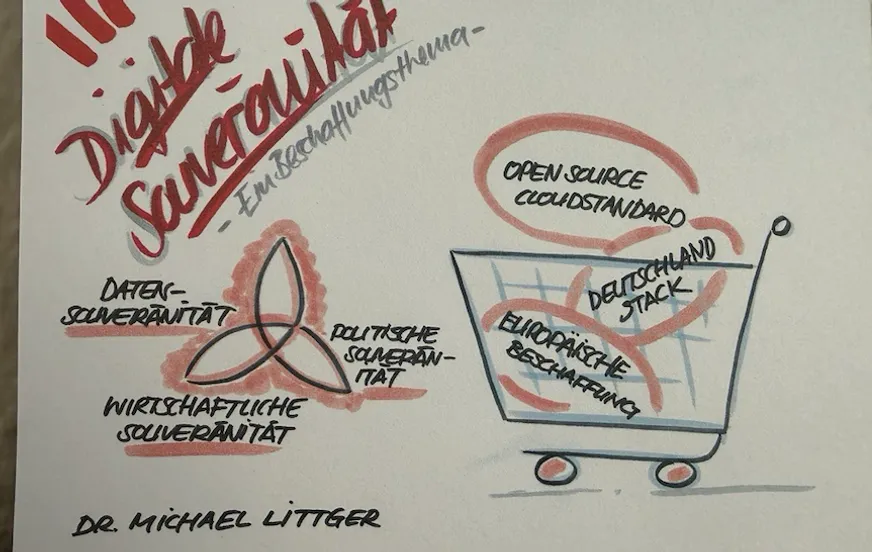 Digitale
Souveränität
- Ein Beschaffungsthema -
OPEN SOURCE
CLOUDSTANDARD
DEUTSCHLAND
STACK
EUROPÄISCHE
BESCHAFFUNG
DATEN-
SOUVERÄNITÄT
POLITISCHE
SOUVERÄN-
ITÄT
WIRTSCHAFTLICHE
SOUVERÄNITÄT
DR. MICHAEL LITTGER